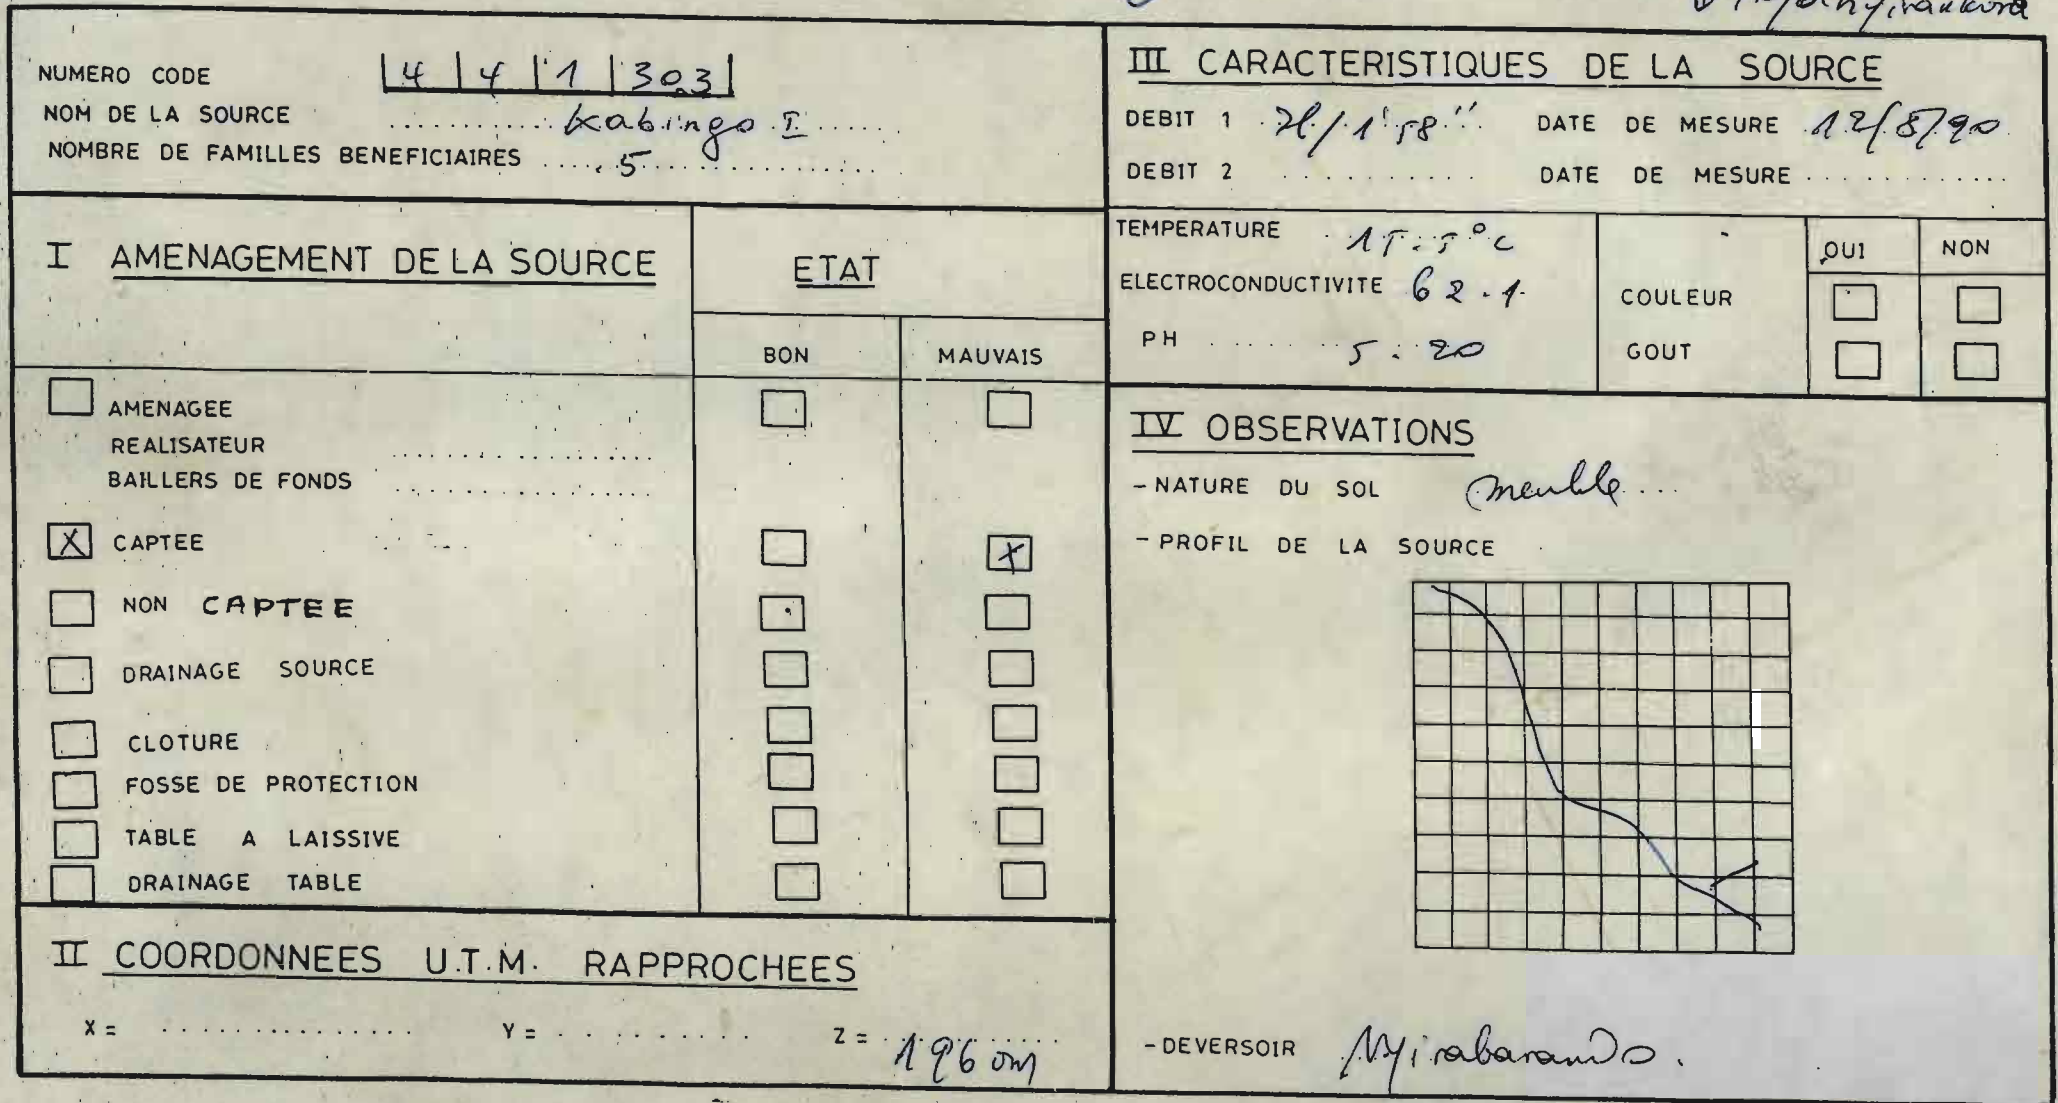 NUMERO CODE |4|4|1|303|
NOM DE LA SOURCE Kabingo I
NOMBRE DE FAMILLES BENEFICIAIRES 5
I AMENAGEMENT DE LA SOURCE
ETAT
BON MAUVAIS
AMENAGEE
REALISATEUR
BAILLERS DE FONDS
X CAPTEE X
NON CAPTEE
DRAINAGE SOURCE
CLOTURE
FOSSE DE PROTECTION
TABLE A LAISSIVE
DRAINAGE TABLE
II COORDONNEES U.T.M. RAPPROCHEES
X = Y = Z = 1960m
III CARACTERISTIQUES DE LA SOURCE
DEBIT 1 2l/1'58'' DATE DE MESURE 12/8/90
DEBIT 2 DATE DE MESURE
TEMPERATURE 15.5°C
ELECTROCONDUCTIVITE 62.1
PH 5.20
OUI NON
COULEUR
GOUT
IV OBSERVATIONS
- NATURE DU SOL meuble
- PROFIL DE LA SOURCE
- DEVERSOIR Nyirabarando.